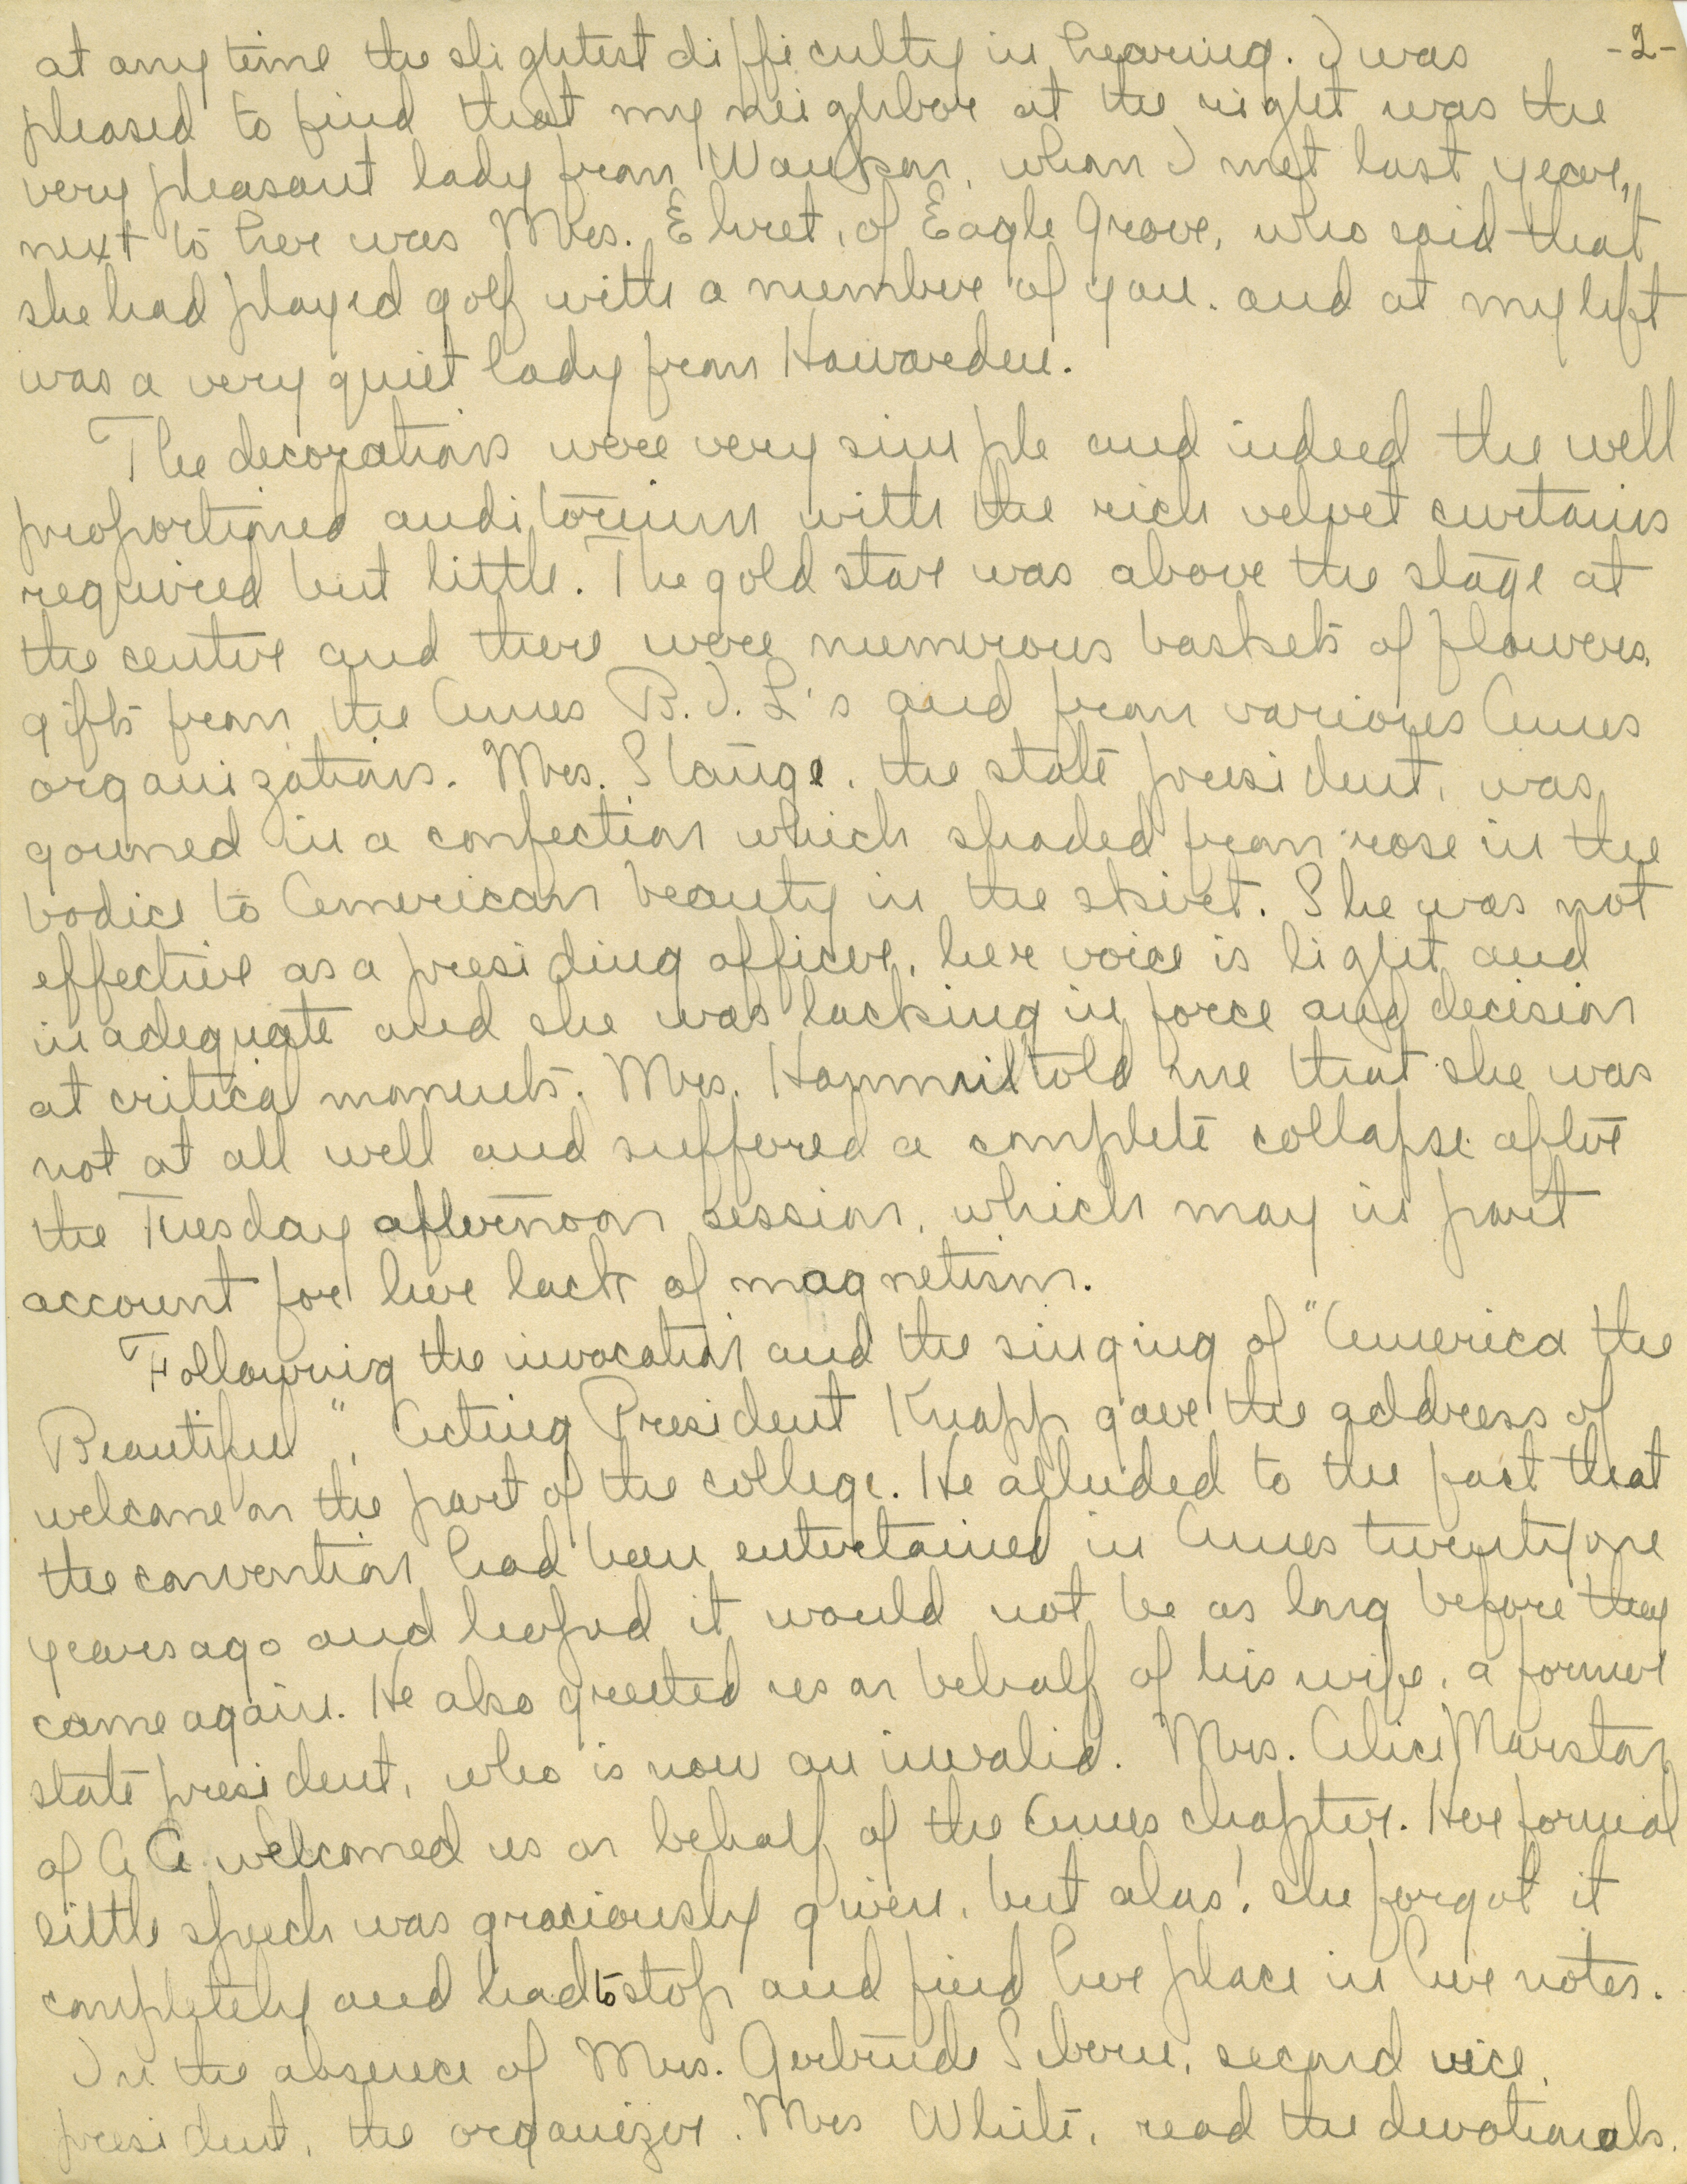 -2-
at any time the slightest difficulty in hearing. I was
pleased to find that my neighbor at the right was the
very pleasant lady from Waukon, whom I met last year,
next to her was Mrs. Ehret, of Eagle Grove, who said that
she had played golf with a number of you. and at my left
was a very quiet lady from Hawarden.
The decorations were very simple and indeed the well
proportioned auditorium with the rich velvet curtains
required but little. The gold star was above the stage at
the center and there were numerous baskets of flowers,
gifts from the Ames B.I.L's and from various Ames
organizations. Mrs. Stange, the state president, was
gowned in a confection which shaded from rose in the
bodice to American beauty in the skirt. She was not
effective as a presiding officer, her voice is light and
inadequate and she was lacking in force and decision
at critical moments. Mrs. Hammil told me that she was
not at all well and suffered a complete collapse after
the Tuesday afternoon session, which may in part
account for her lack of magnetism.
Following the invocation and the singing of "America the
Beautiful", Acting President Knapp gave the address of
welcome on the part of the college. He alluded to the fact that
the convention had been entertained in Ames twenty one
years ago and hoped it would not be as long before they
came again. He also greeted us on behalf of his wife, a former
state president, who is now an invalid. Mrs. Alice Marston
of A A welcomed us on behalf of the Ames chapter. Her formal
little speech was graciously given, but alas! she forgot it
completely and had to stop and find her place in her notes.
In the absence of Mrs. Gertrude Sibern, second vice
president, the organizer, Mrs White, read the devotionals.